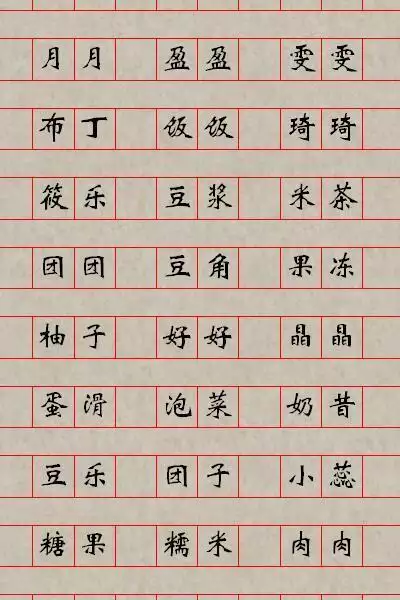 月月 盈盈 雯雯
布丁 饭饭 琦琦
筱乐 豆浆 米茶
团团 豆角 果冻
柚子 好好 晶晶
蛋滑 泡菜 奶昔
豆乐 团子 小蕊
糖果 糯米 肉肉